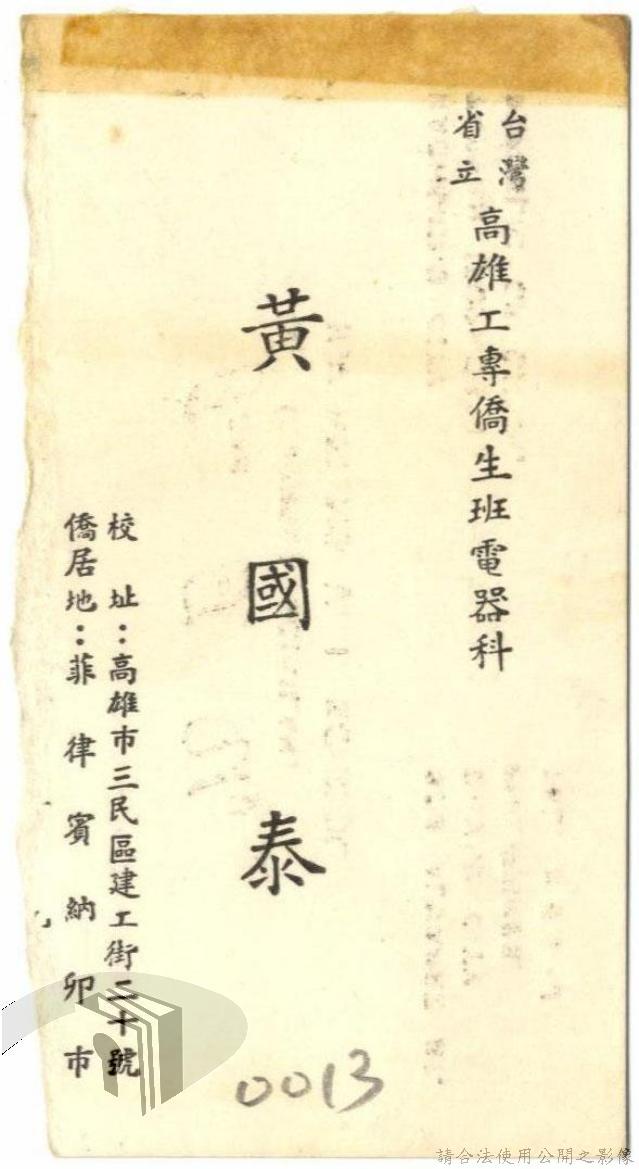 台灣省立高雄工專僑生班電器科
黃國泰
校址：高雄市三民區建工街二十號
僑居地：菲律賓納卯市
0013
請合法使用公開之影像